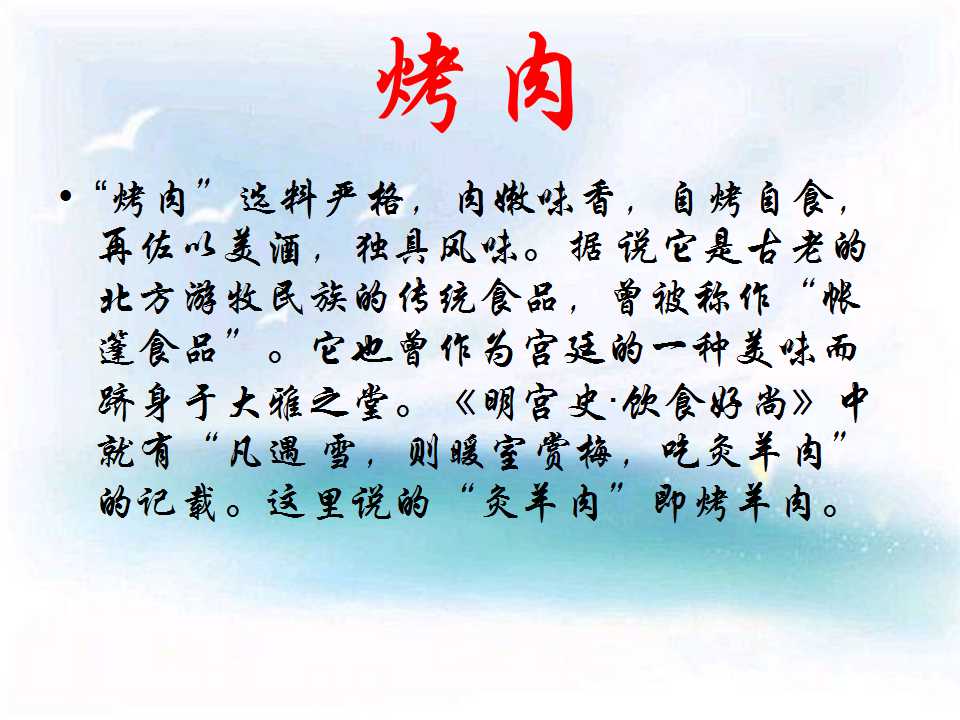 烤肉
• “烤肉”选料严格，肉嫩味香，自烤自食，
再佐以美酒，独具风味。据说它是古老的
北方游牧民族的传统食品，曾被称作“帐
篷食品”。它也曾作为宫廷的一种美味而
跻身于大雅之堂。《明宫史·饮食好尚》中
就有“凡遇雪，则暖室赏梅，吃灸羊肉”
的记载。这里说的“灸羊肉”即烤羊肉。